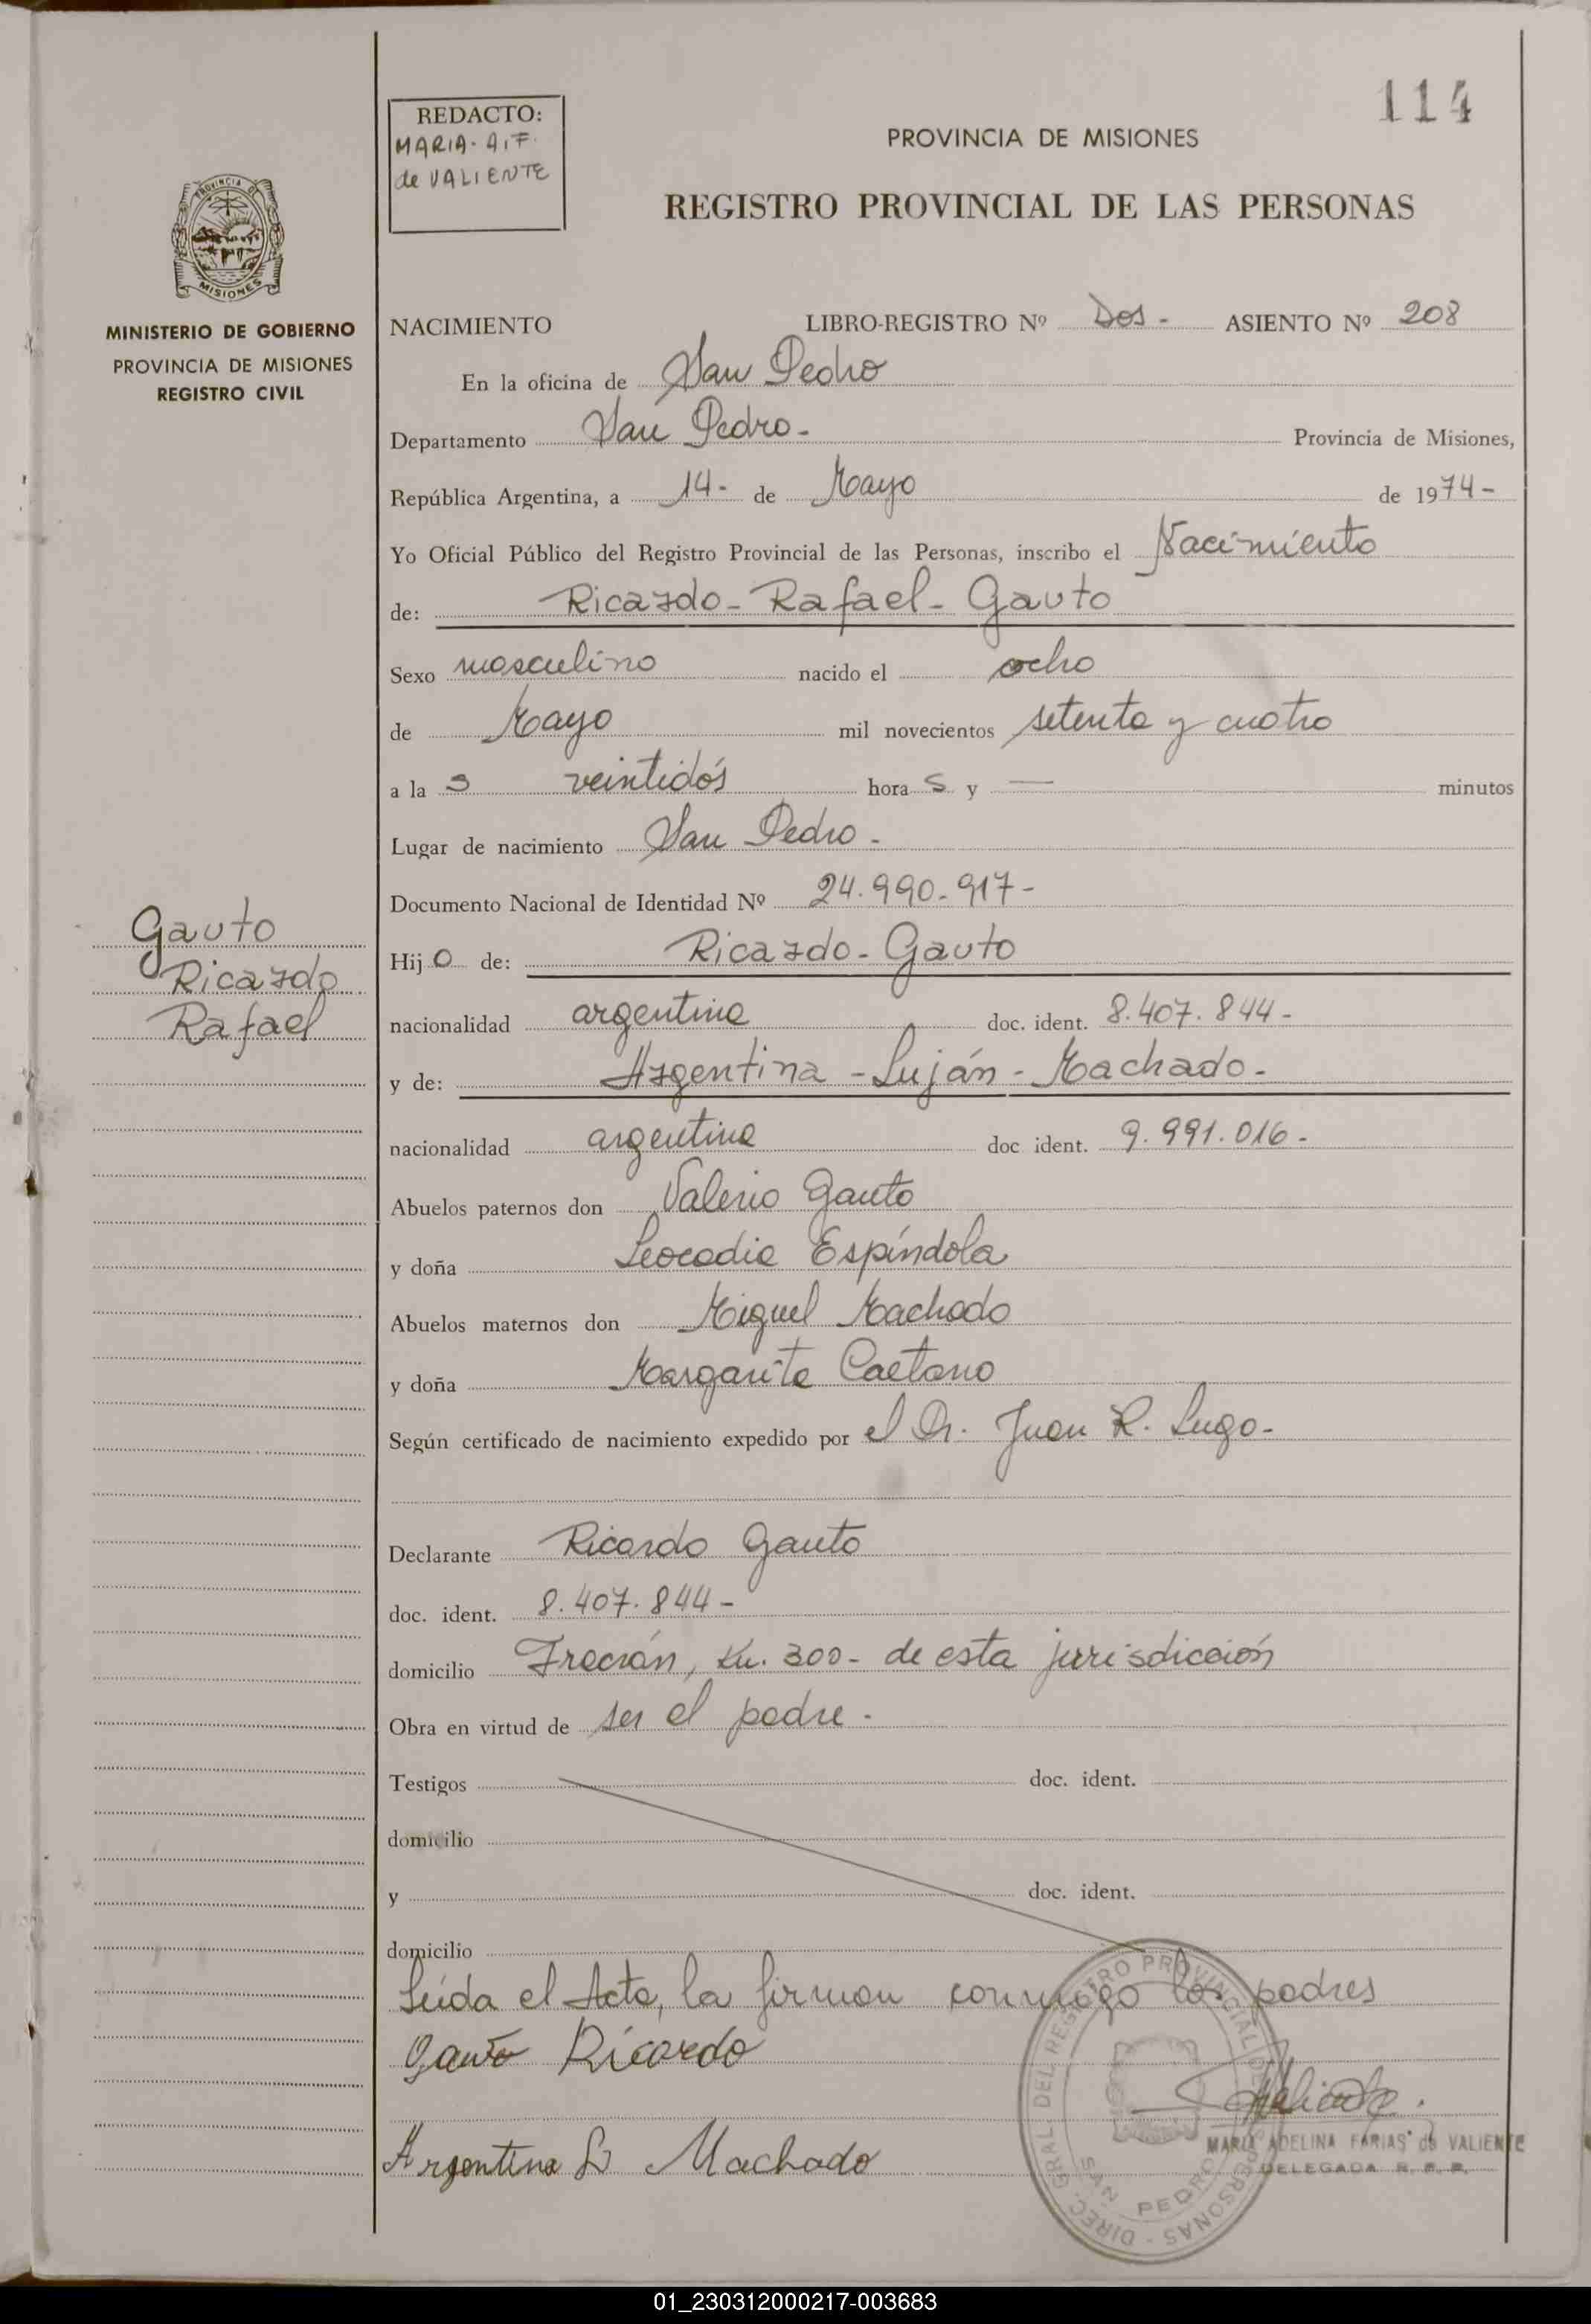 114
REDACTO:
MARIA. A. F.
de VALIENTE
PROVINCIA DE MISIONES
REGISTRO PROVINCIAL DE LAS PERSONAS
PROVINCIA DE
MISIONES
MINISTERIO DE GOBIERNO
PROVINCIA DE MISIONES
REGISTRO CIVIL
NACIMIENTO LIBRO-REGISTRO Nº Dos - ASIENTO Nº 208
En la oficina de San Pedro
Departamento San Pedro - Provincia de Misiones,
República Argentina, a 14 - de Mayo de 1974 -
Yo Oficial Público del Registro Provincial de las Personas, inscribo el Nacimiento
de: Ricardo - Rafael - Gauto
Sexo masculino nacido el ocho
de Mayo mil novecientos setenta y cuatro
a la s veintidós hora s y — minutos
Lugar de nacimiento San Pedro -
Documento Nacional de Identidad Nº 24.990.917 -
Gauto
Ricardo
Rafael
Hij o de: Ricardo - Gauto
nacionalidad argentina doc. ident. 8.407.844 -
y de: Argentina - Luján - Machado -
nacionalidad argentina doc ident. 9.991.016 -
Abuelos paternos don Valerio Gauto
y doña Leocadia Espíndola
Abuelos maternos don Miguel Machado
y doña Margarita Caetano
Según certificado de nacimiento expedido por el Dr. Juan R. Lugo -
Declarante Ricardo Gauto
doc. ident. 8.407.844 -
domicilio Fracrán, Km. 300 - de esta jurisdicción
Obra en virtud de ser el padre -
Testigos doc. ident.
domicilio
y doc. ident.
domicilio
Leída el Acta, la firman conmigo los padres
Gauto Ricardo
Valiente.
MARIA ADELINA FARIAS de VALIENTE
DELEGADA R. P. P.
Argentina L Machado
DIREC. GRAL. DEL REGISTRO PROVINCIAL DE PERSONAS -
SAN PEDRO
01_230312000217-003683